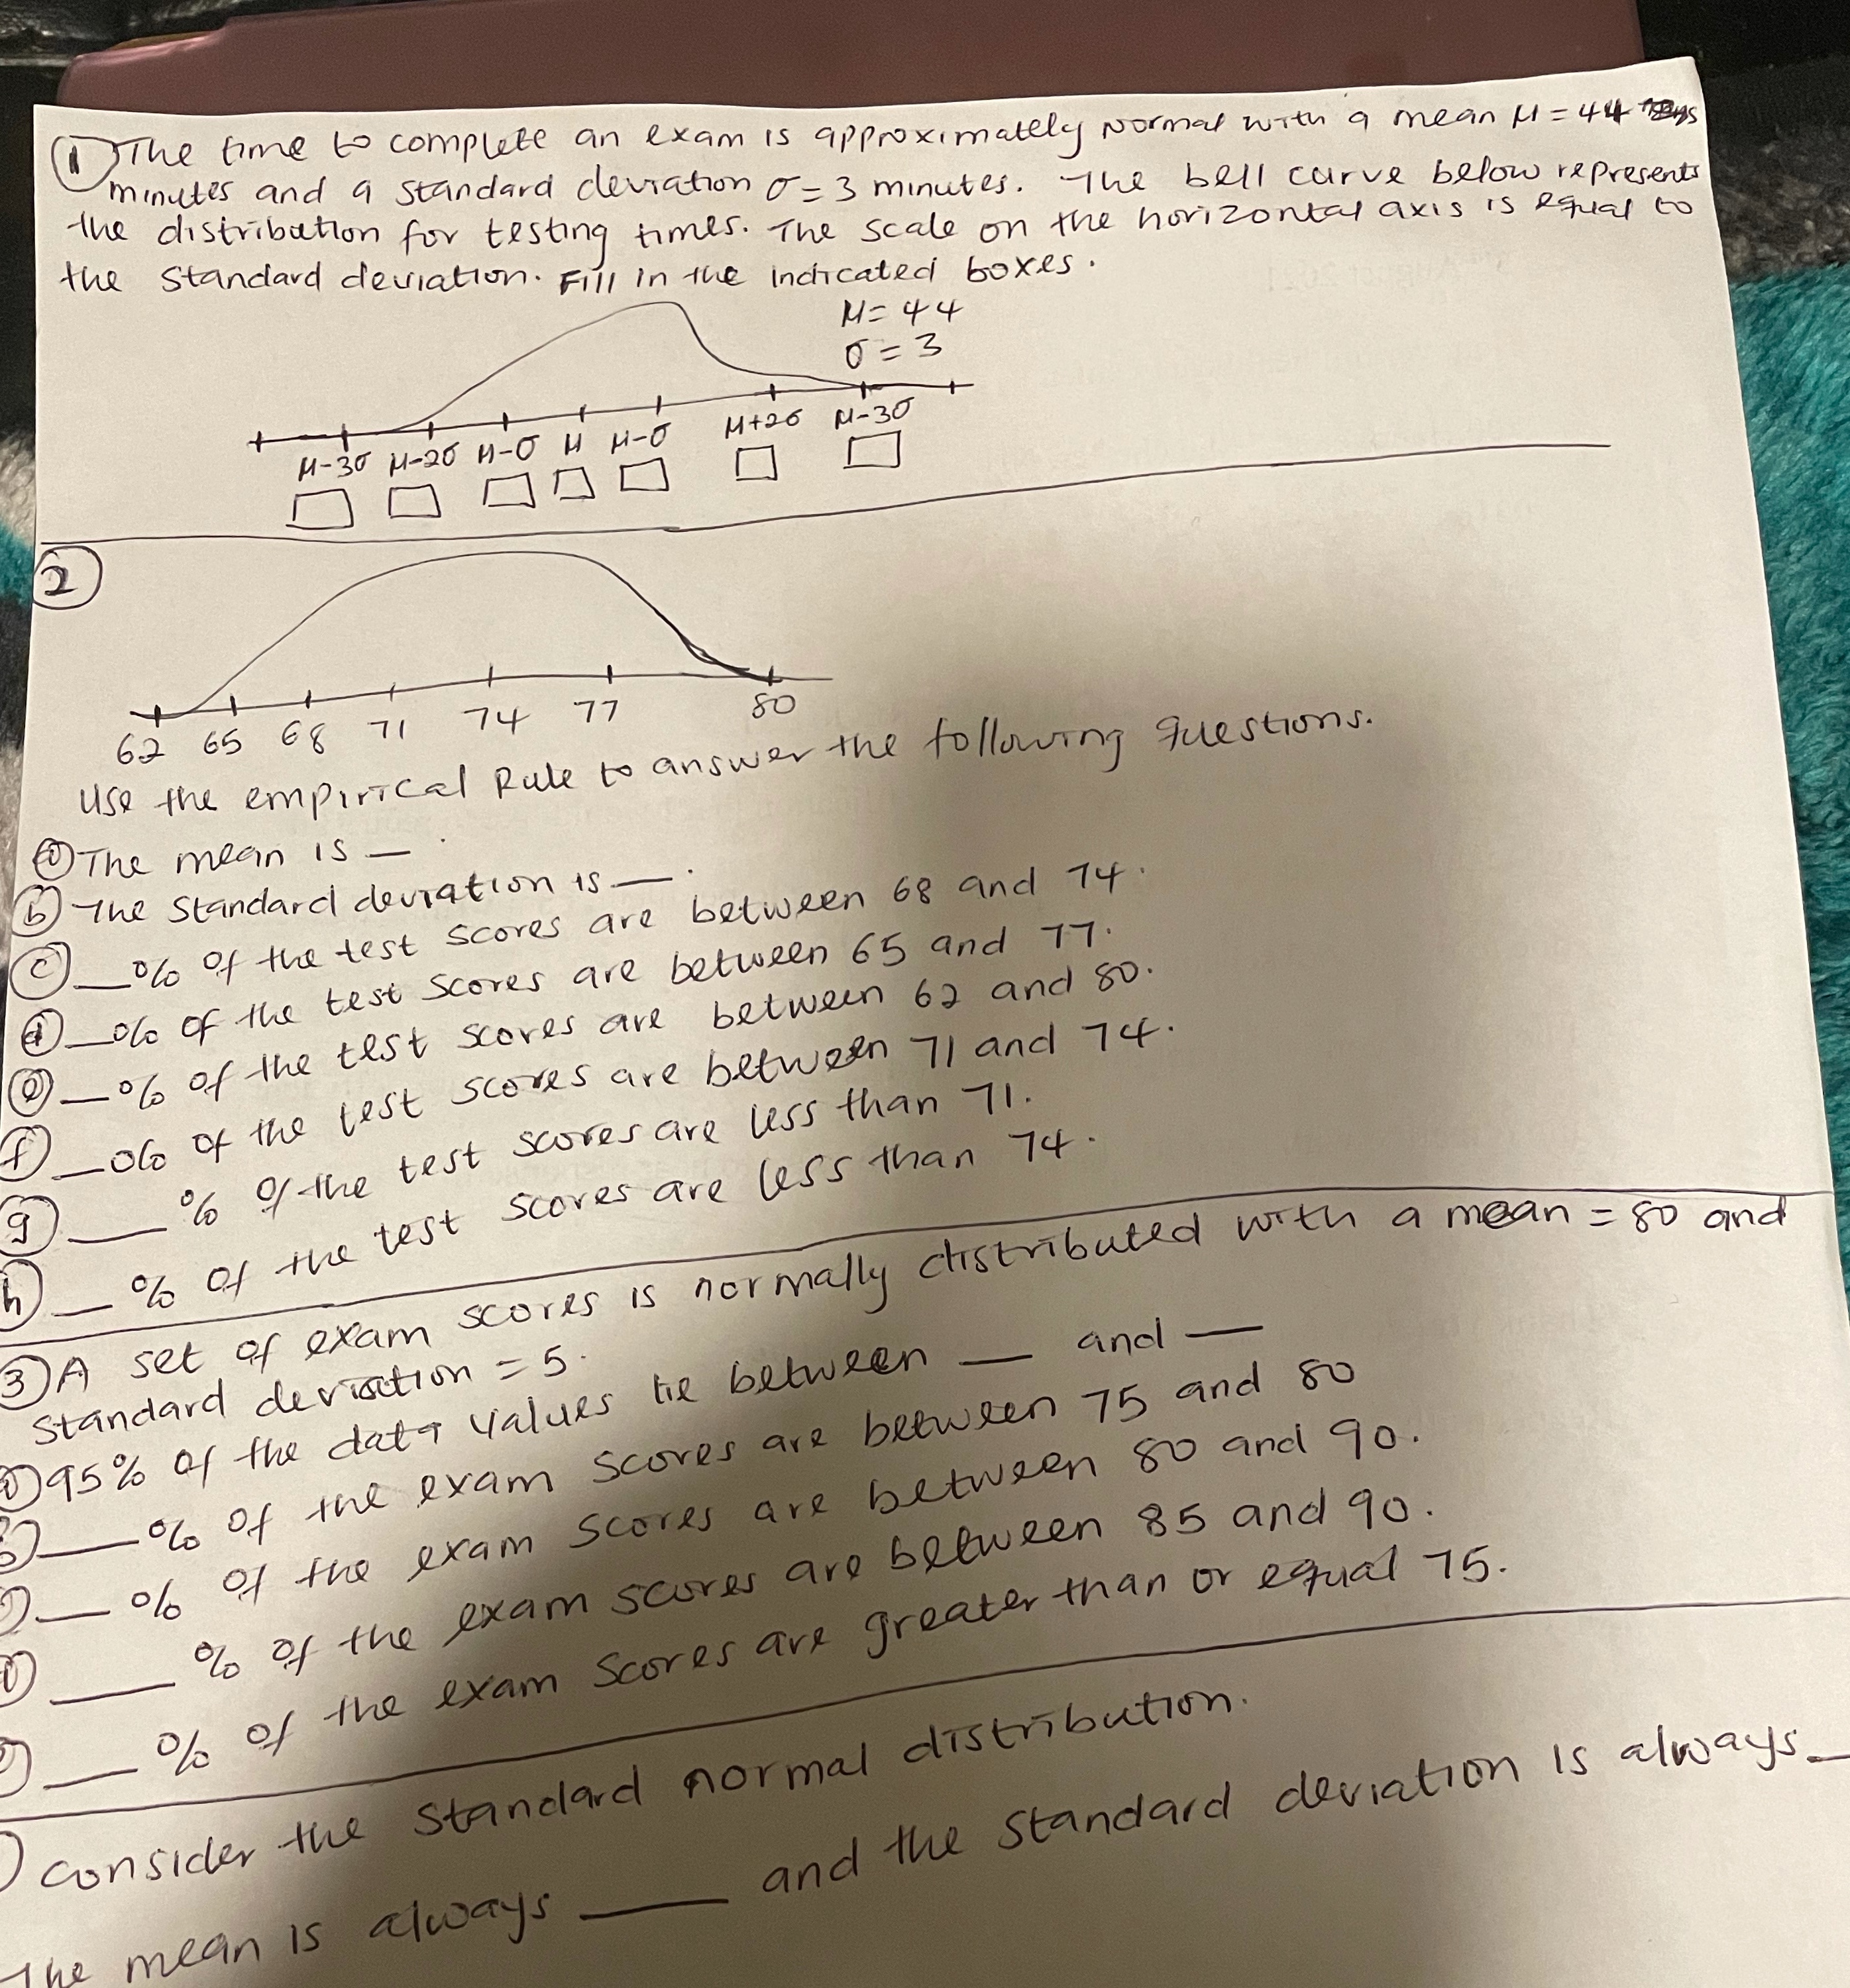 ① The time to complete an exam is approximately Normal with a mean μ = 44
minutes and a standard deviation σ = 3 minutes. The bell curve below represents
the distribution for testing times. The scale on the horizontal axis is equal to
the standard deviation. Fill in the indicated boxes.
μ = 44
σ = 3
μ-3σ μ-2σ μ-σ μ μ-σ μ+2σ μ-3σ
②
62 65 68 71 74 77 80
Use the empirical Rule to answer the following questions.
ⓐ The mean is __.
ⓑ The Standard deviation is __.
ⓒ __% of the test scores are between 68 and 74.
ⓓ __% of the test scores are between 65 and 77.
ⓔ __% of the test scores are between 62 and 80.
ⓕ __% of the test scores are between 71 and 74.
ⓖ __% of the test scores are less than 71.
ⓗ __% of the test scores are less than 74.
③ A set of exam scores is normally distributed with a mean = 80 and
standard deviation = 5.
95% of the data values lie between __ and __
__% of the exam scores are between 75 and 80
__% of the exam scores are between 80 and 90.
__% of the exam scores are between 85 and 90.
__% of the exam scores are greater than or equal 75.
Consider the standard normal distribution.
The mean is always __ and the standard deviation is always __